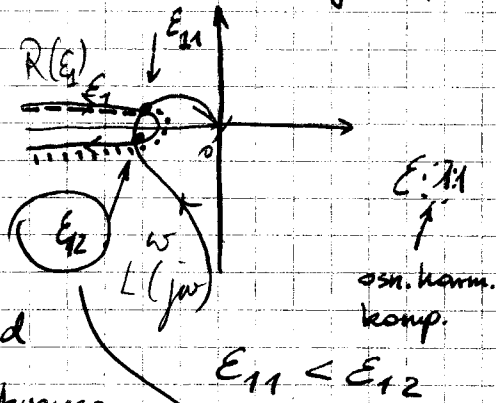 ε₁₁
R(ε₁)
ε₁
0
ε₁₂
ω
L(jω)
osn. harm.
komp.
d
ε₁₁ < ε₁₂